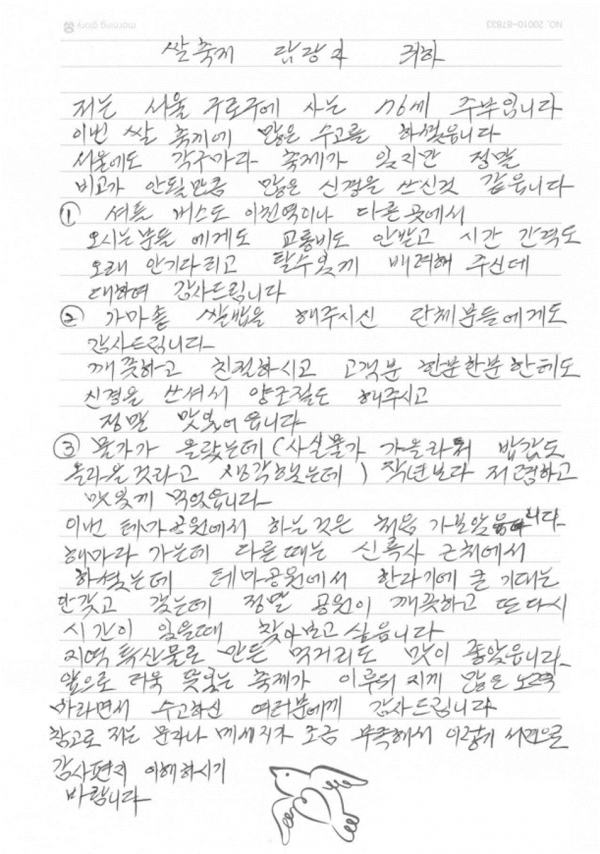 NO. 20010-87833
morning glory
쌀축제 담당자 귀하
저는 서울 구로구에 사는 76세 주부입니다
이번 쌀 축제에 많은 수고를 하셨읍니다
서울에도 각구마다 축제가 있지만 정말
비교가 안될만큼 많은 신경을 쓰신것 같읍니다
① 셔틀 버스도 이천역이나 다른곳에서
오시는분들 에게도 교통비도 안받고 시간 간격도
오래 안기다리고 탈수있게 배려해 주신데
대하여 감사드립니다
② 가마솥 쌀밥을 해주시신 단체분들에게도
감사드립니다
깨끗하고 친절하시고 고객분 한분한분한테도
신경을 쓰셔서 양조절도 해주시고
정말 맛있어읍니다
③ 물가가 올랐는데 (사실물가가 올라 밥값도
올라올것라고 생각했는데) 작년보다 저렴하고
맛있게 먹었읍니다
이번 테마공원에서 하는것은 처음 가보았읍니다
해마다 가는데 다른때는 신륵사 근처에서
하셨는데 테마공원에서 한다기에 큰 기대는
안갖고 갔는데 정말 공원이 깨끗하고 또다시
시간이 있을때 찾아보고 싶읍니다
지역 특산물로 만든 먹거리도 맛이 좋았읍니다
앞으로 더욱 뜻있는 축제가 이루워지게 많은 노력
바라면서 수고하신 여러분에게 감사드립니다
참고로 저는 문자나 메세지가 조금 부족해서 이렇게 서면으로
감사편지 이해하시기
바랍니다